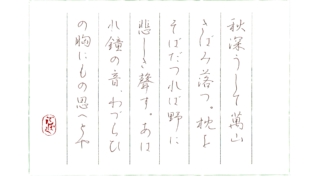 秋深うして萬山
きばみ落つ。枕を
そばだつれば野に
悲しき聲す。あは
れ鐘の音、わづらひ
の胸にもの思へとや